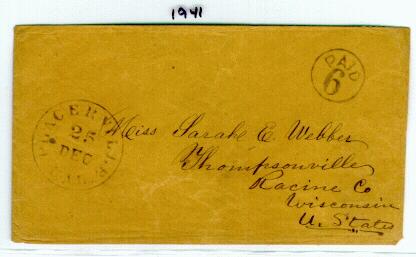 1941
PAID
6
PLACERVILLE
25
DEC
CAL.
Miss Sarah E. Webber
Thompsonville
Racine Co
Wisconsin
U. States